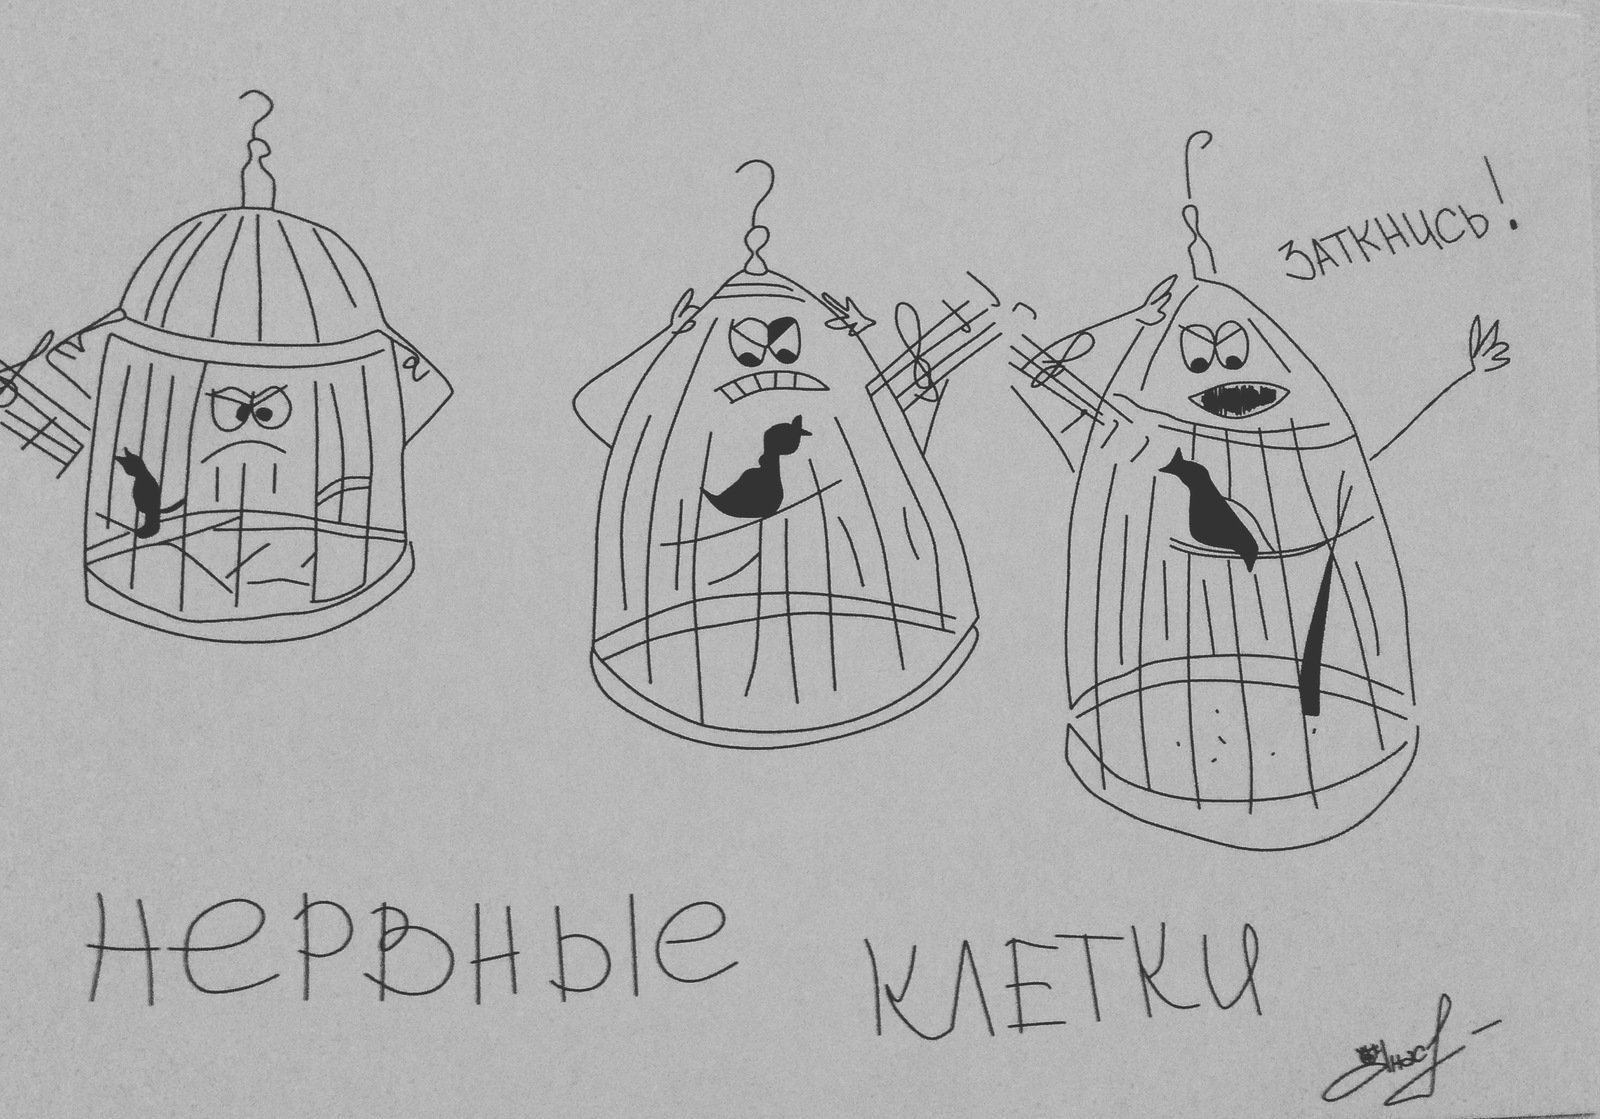 ЗАТКНИСЬ!
НеРВНЫе КЛЕТКИ